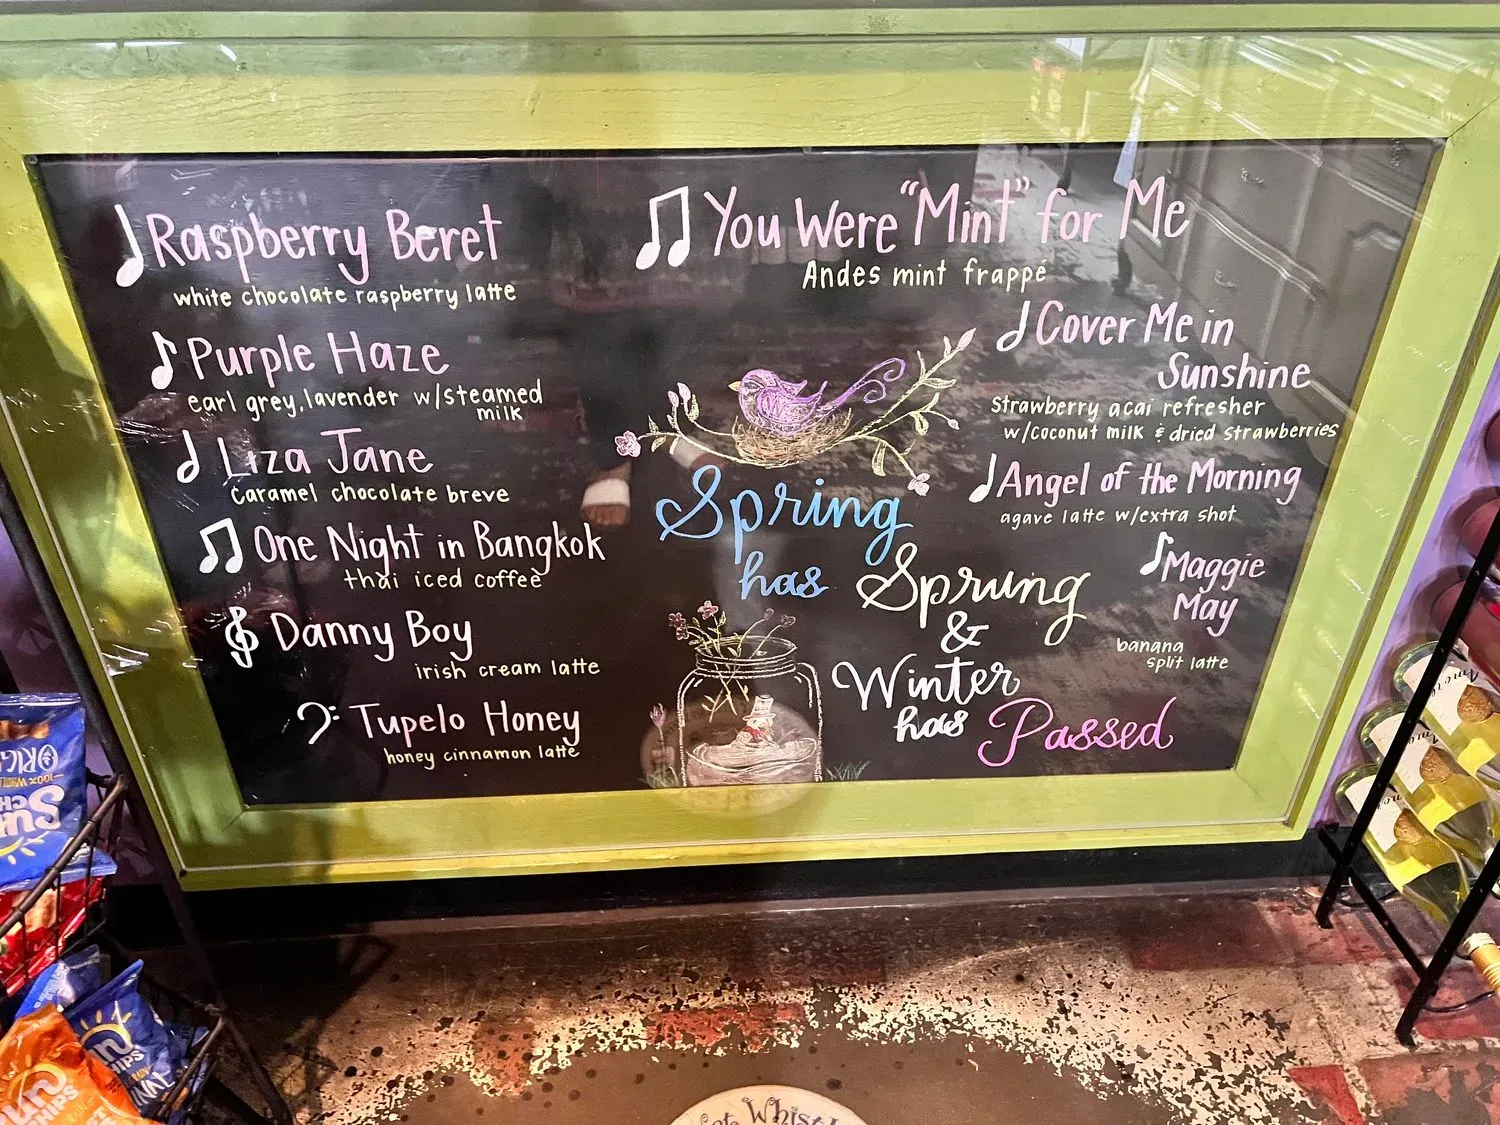 Raspberry Beret
white chocolate raspberry latte
Purple Haze
earl grey, lavender w/steamed
milk
Liza Jane
Caramel chocolate breve
One Night in Bangkok
thai iced coffee
Danny Boy
irish cream latte
Tupelo Honey
honey cinnamon latte
You Were "Mint" for Me
Andes mint frappé
Cover Me in
Sunshine
Strawberry acai refresher
w/coconut milk & dried strawberries
Angel of the Morning
agave latte w/extra shot
Maggie
May
banana
split latte
Spring
has Sprung
&
Winter
has Passed
Sun